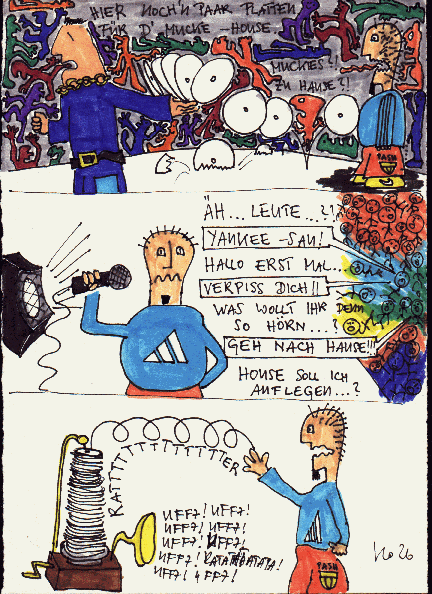 HIER NOCH'N PAAR PLATTEN
FÜR D' MUCKE-HOUSE.
MUCKIES?!
ZU HAUSE?!
PASH
ÄH... LEUTE...?!
YANKEE-SAU!
HALLO ERST MAL..
VERPISS DICH!!
WAS WOLLT IHR DENN
SO HÖRN....?
GEH NACH HAUSE!!!
HOUSE SOLL ICH
AUFLEGEN...?
RATTTTTTTTTTTTTTER
UFF7! UFF7!
UFF7! UFF7!
UFF7! UFF7!
UFF7! RATATATATATA!
UFF7! UFF7!
PASH